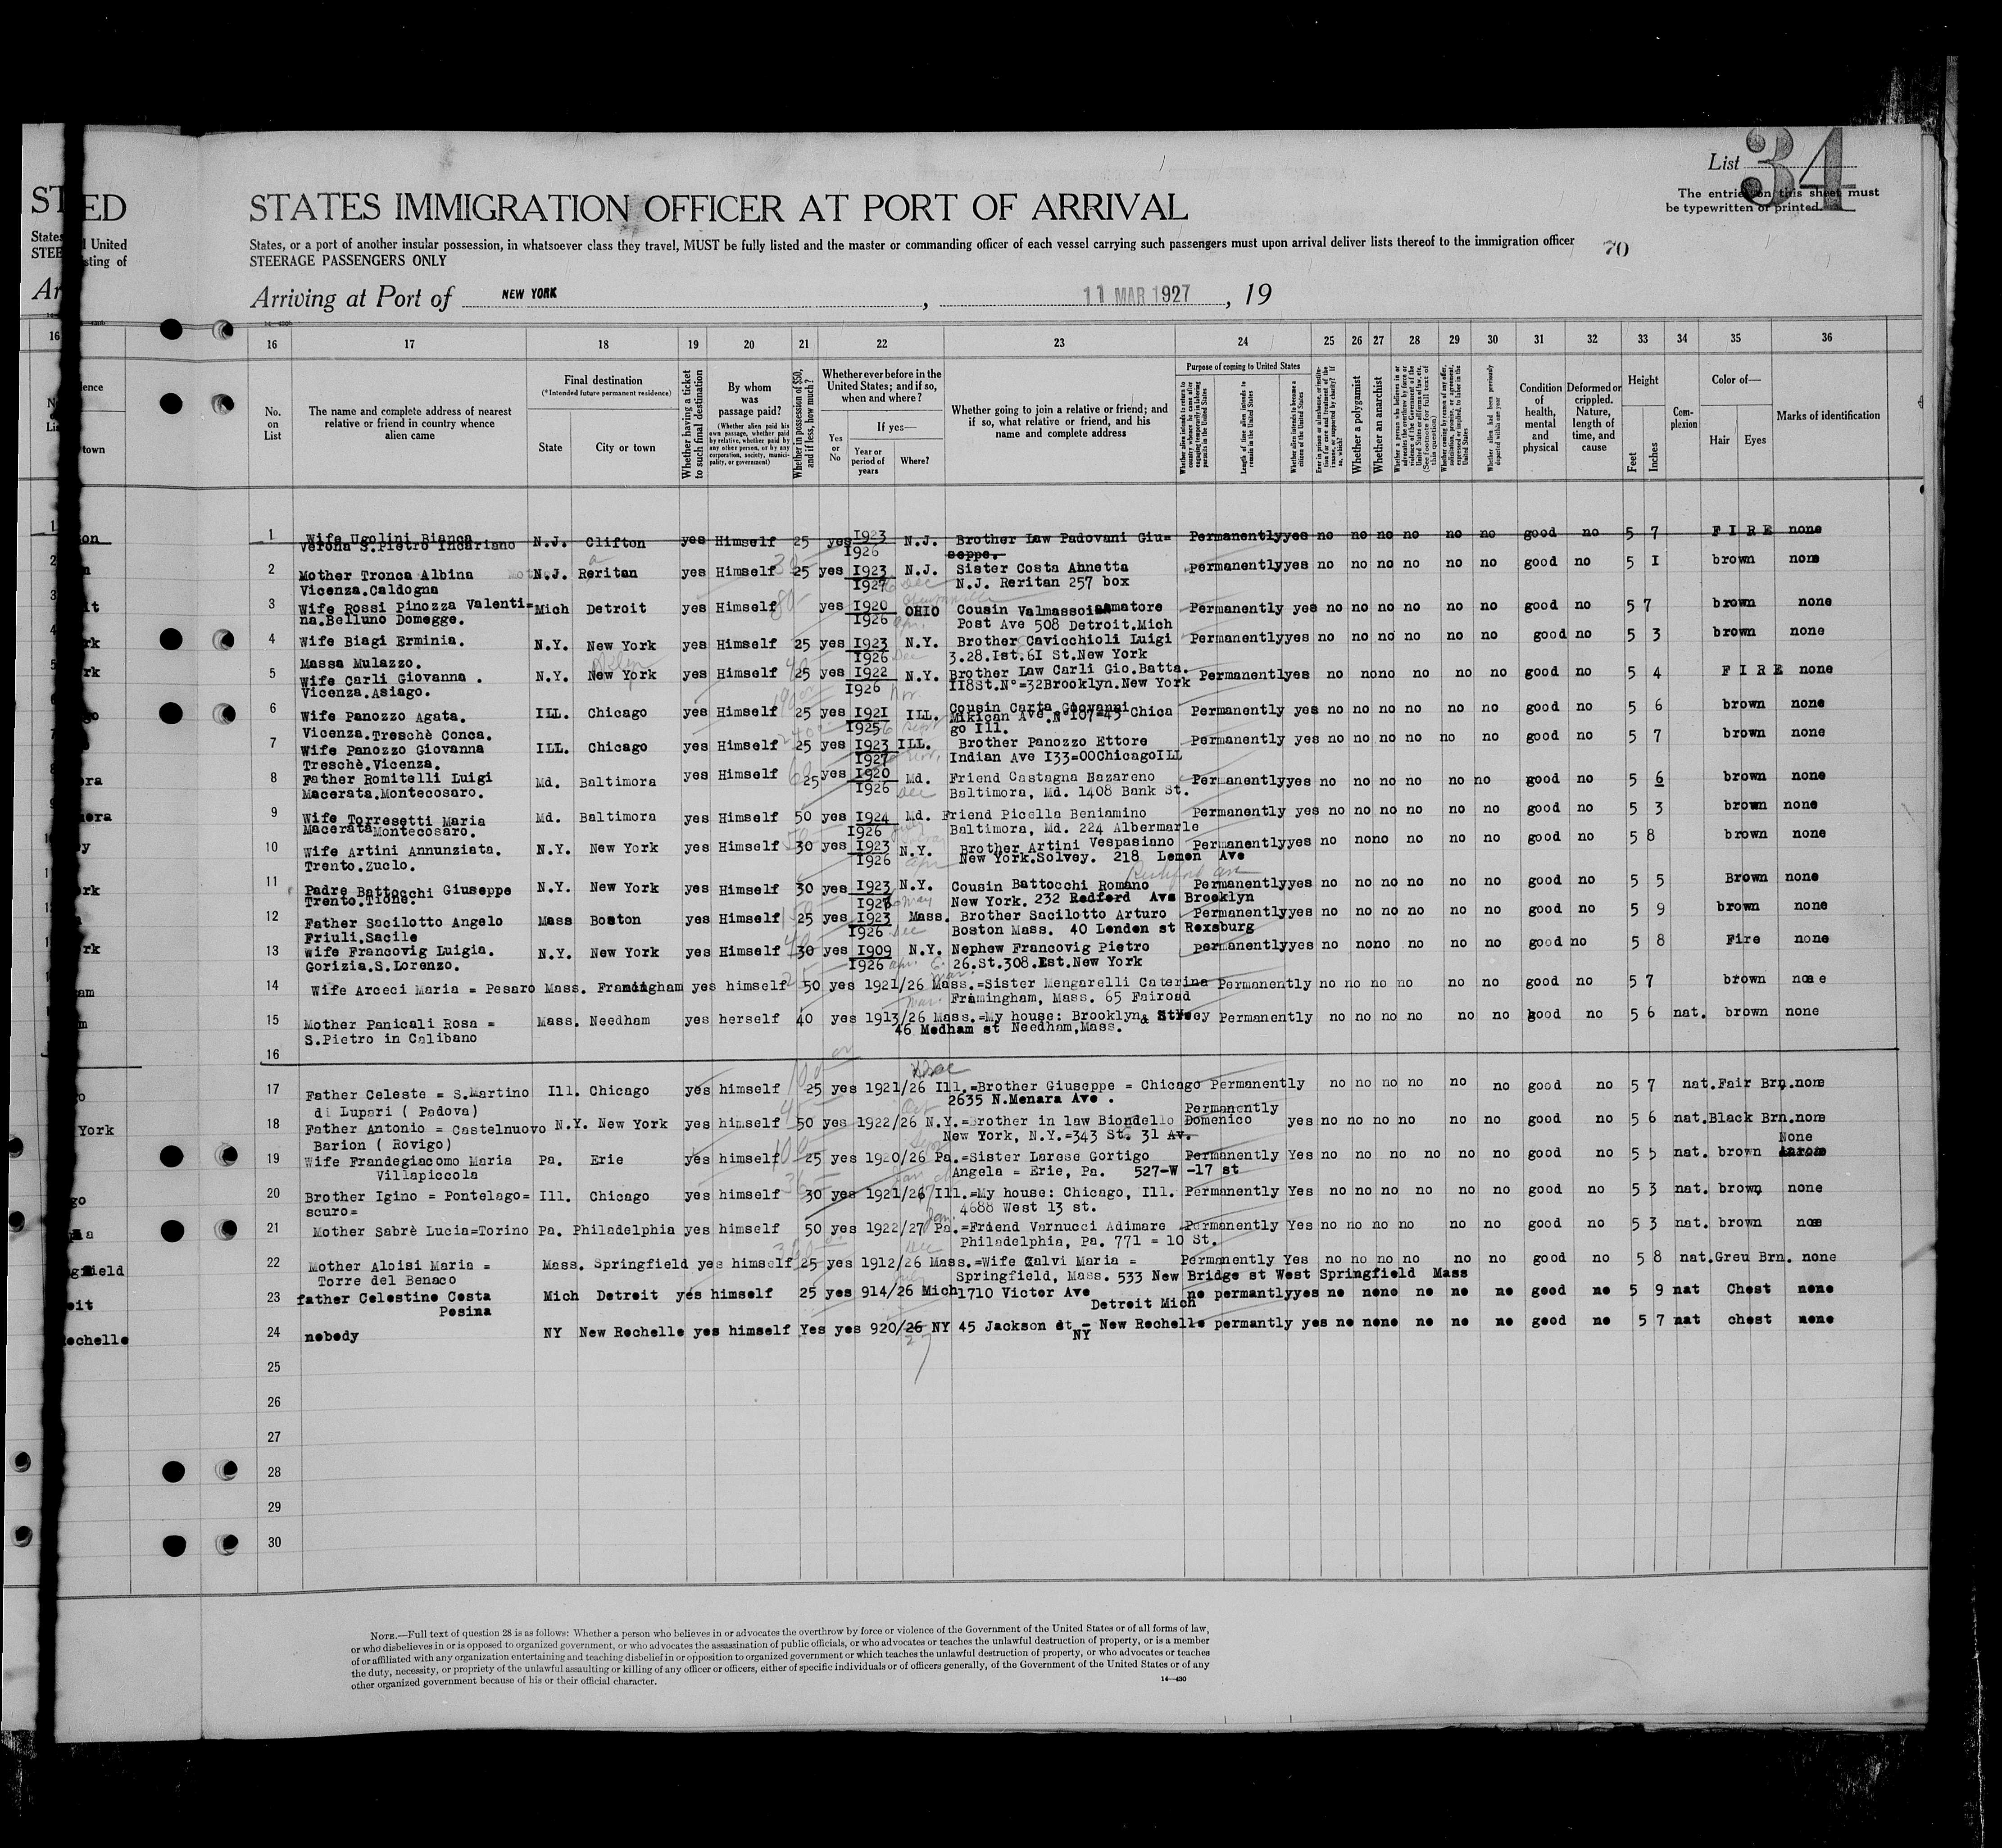 List 34
The entries on this sheet must
be typewritten or printed.
STATES IMMIGRATION OFFICER AT PORT OF ARRIVAL
States, or a port of another insular possession, in whatsoever class they travel, MUST be fully listed and the master or commanding officer of each vessel carrying such passengers must upon arrival deliver lists thereof to the immigration officer
STEERAGE PASSENGERS ONLY
70
Arriving at Port of NEW YORK , 11 MAR 1927 , 19
16 17 18 19 20 21 22 23 24 25 26 27 28 29 30 31 32 33 34 35 36
No. on List
The name and complete address of nearest relative or friend in country whence alien came
Final destination
(*Intended future permanent residence)
State
City or town
Whether having a ticket to such final destination
By whom was passage paid?
(Whether alien paid his own passage, whether paid by relative, whether paid by any other person, or by any corporation, society, municipality, or government)
Whether in possession of $50, and if less, how much?
Whether ever before in the United States; and if so, when and where?
Yes or No
If yes—
Year or period of years
Where?
Whether going to join a relative or friend; and if so, what relative or friend, and his name and complete address
Purpose of coming to United States
Length of time alien intends to remain in the United States
Whether alien intends to become a citizen of the United States
Whether a polygamist
Whether an anarchist
Condition of health, mental and physical
Deformed or crippled. Nature, length of time, and cause
Height
Feet
Inches
Complexion
Color of—
Hair
Eyes
Marks of identification
1 Wife Ugolini Bianca N.J. Clifton yes Himself 25 yes 1923 N.J. Brother Law Padovani Giu= Permanently yes no no no no no no good no 5 7 FIRE none
Verona S.Pietro Incariano 1926 seppe.
2 Mother Tronca Albina N.J. Reritan yes Himself 25 yes I923 N.J. Sister Costa Ahnetta Permanently yes no no no no no no good no 5 I brown none
Vicenza.Caldogna 1927 Dec N.J. Reritan 257 box
3 Wife Rossi Pinozza Valenti= Mich Detroit yes Himself yes I920 OHIO Cousin Valmassoi Permanently yes no no no no no no good no 5 7 brown none
na.Belluno Domegge. I926 Post Ave 508 Detroit.Mich
4 Wife Biagi Erminia. N.Y. New York yes Himself 25 yes I923 N.Y. Brother Cavicchioli Luigi Permanently yes no no no no no no good no 5 3 brown none
Massa Mulazzo. I926 Dec 3.28.Ist.6I St.New York
5 Wife Carli Giovanna . N.Y. New York yes Himself 25 yes I922 N.Y. Brother Law Carli Gio.Batta. Permanently yes no no no no no no good no 5 4 FIRE none
Vicenza.Asiago. I926 II8St.N°=32Brooklyn.New York
6 Wife Panozzo Agata. ILL. Chicago yes Himself 25 yes I92I ILL. Cousin Carta Giovanni Permanently yes no no no no no no good no 5 6 brown none
Vicenza.Treschè Conca. I925 Mikican Ave.N°I07=45 Chica
go Ill.
7 Wife Panozzo Giovanna ILL. Chicago yes Himself 25 yes I923 ILL. Brother Panozzo Ettore Permanently yes no no no no no no good no 5 7 brown none
Treschè.Vicenza. I927 Indian Ave I33=00ChicagoILL
8 Father Romitelli Luigi Md. Baltimora yes Himself 25 yes I920 Md. Friend Castagna Nazareno Permanently yes no no no no no no good no 5 6 brown none
Macerata.Montecosaro. I926 Dec Baltimora, Md. 1408 Bank St.
9 Wife Torresetti Maria Md. Baltimora yes Himself 50 yes I924 Md. Friend Picella Beniamino Permanently yes no no no no no no good no 5 3 brown none
Macerata Montecosaro. I926 Baltimora, Md. 224 Albermarle
10 Wife Artini Annunziata. N.Y. New York yes Himself 30 yes I923 N.Y. Brother Artini Vespasiano Permanently yes no no no no no no good no 5 8 brown none
Trento.Zuclo. I926 New York.Solvey. 218 Lemon Ave
11 Padre Battocchi Giuseppe N.Y. New York yes Himself 30 yes I923 N.Y. Cousin Battocchi Romano Permanently yes no no no no no no good no 5 5 Brown none
Trento.Tione. May New York. 232 Redford Ave Brooklyn
12 Father Sacilotto Angelo Mass Boston yes Himself 25 yes I923 Mass. Brother Sacilotto Arturo Permanently yes no no no no no no good no 5 9 brown none
Friuli.Sacile I926 Dec Boston Mass. 40 Lenden st Roxsburg
13 Wife Francovig Luigia. N.Y. New York yes Himself 30 yes I909 N.Y. Nephew Francovig Pietro Permanently yes no no no no no no good no 5 8 Fire none
Gorizia.S.Lorenzo. I926 26.St.308.Est.New York
14 Wife Arceci Maria = Pesaro Mass. Framingham yes himself 50 yes 1921/26 Mass.=Sister Mengarelli Caterina Permanently no no no no no no good no 5 7 brown none
Framingham, Mass. 65 Fairoad
15 Mother Panicali Rosa = Mass. Needham yes herself 40 yes 1913/26 Mass.=My house: Brooklyn Permanently no no no no no no good no 5 6 nat. brown none
S.Pietro in Calibano 46 Medham st Needham,Mass.
16
17 Father Celeste = S.Martino Ill. Chicago yes himself 25 yes 1921/26 Ill.=Brother Giuseppe = Chicago Permanently no no no no no no good no 5 7 nat. Fair Brn. none
di Lupari ( Padova) 2635 N.Menara Ave .
18 Father Antonio = Castelnuovo N.Y. New York yes himself 50 yes 1922/26 N.Y.=Brother in law Biondello Domenico Permanently yes no no no no no no good no 5 6 nat. Black Brn. none
Barion ( Rovigo) New York, N.Y.=343 St. 31 Av.
19 Wife Frandegiacomo Maria Pa. Erie yes himself 25 yes 1920/26 Pa.=Sister Larese Gortigo Permanently Yes no no no no no no good no 5 5 nat. brown None
Villapiccola Angela = Erie, Pa. 527-W -17 st
20 Brother Igino = Pontelago= Ill. Chicago yes himself 30 yes 1921/26 Ill.=My house: Chicago, Ill. Permanently Yes no no no no no no good no 5 3 nat. brown none
scuro= 4688 West 13 st.
21 Mother Sabrè Lucia=Torino Pa. Philadelphia yes himself 50 yes 1922/27 Pa.=Friend Varnucci Adimare Permanently Yes no no no no no no good no 5 3 nat. brown
Philadelphia, Pa. 771 = 10 St.
22 Mother Aloisi Maria = Mass. Springfield yes himself 25 yes 1912/26 Mass.=Wife Galvi Maria = Permanently Yes no no no no no no good no 5 8 nat. Greu Brn. none
Torre del Benaco Springfield, Mass. 533 New Bridge st West Springfield Mass
23 father Celestino Costa Mich Detroit yes himself 25 yes 914/26 Mich 1710 Victor Ave no permantly yes no no no no no no good no 5 9 nat Chest none
Pesina Detroit Mich
24 nobody NY New Rochelle yes himself Yes yes 920/26 NY 45 Jackson st - New Rochelle permantly yes no no no no no no good no 5 7 nat chest none
27 NY
25
26
27
28
29
30
NOTE.—Full text of question 28 is as follows: Whether a person who believes in or advocates the overthrow by force or violence of the Government of the United States or of all forms of law,
or who disbelieves in or is opposed to organized government, or who advocates the assassination of public officials, or who advocates or teaches the unlawful destruction of property, or is a member
of or affiliated with any organization entertaining and teaching disbelief in or opposition to organized government or which teaches the unlawful destruction of property, or who advocates or teaches
the duty, necessity, or propriety of the unlawful assaulting or killing of any officer or officers, either of specific individuals or of officers generally, of the Government of the United States or of any
other organized government because of his or their official character.
14—430